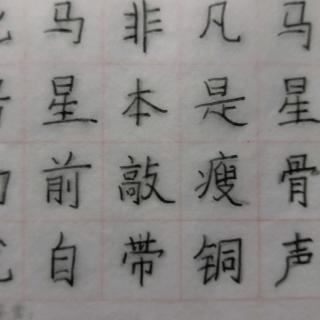 马非凡马
星本是星
前敲瘦骨
自带铜声